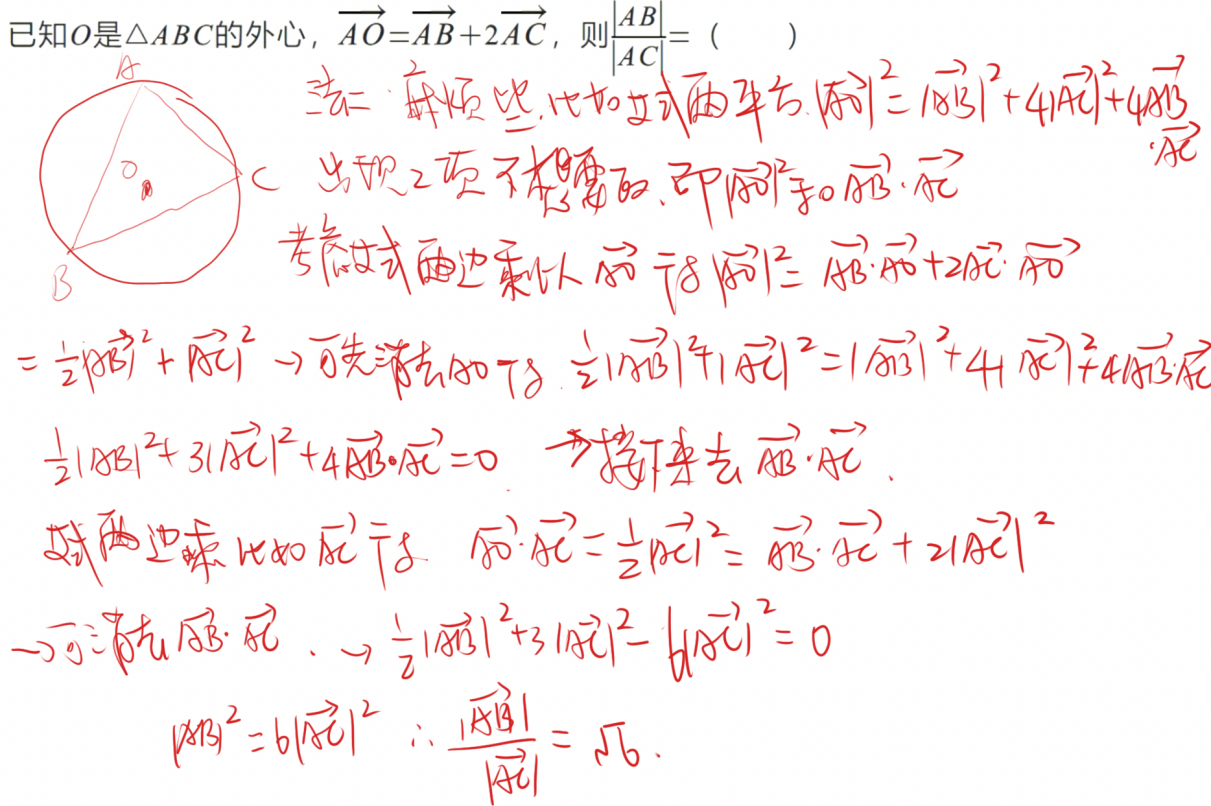 已知O是△ABC的外心，$\overrightarrow{AO}=\overrightarrow{AB}+2\overrightarrow{AC}$，则$\frac{|AB|}{|AC|}$=（　　）
A
O
C
B
法二 麻烦些，比如对式两平方. $|\overrightarrow{AO}|^2=|\overrightarrow{AB}|^2+4|\overrightarrow{AC}|^2+4\overrightarrow{AB}\cdot\overrightarrow{AC}$
出现2项不想要的，即$|\overrightarrow{AO}|^2$和$\overrightarrow{AB}\cdot\overrightarrow{AC}$
考虑对式两边乘以$\overrightarrow{AO}$ 于是$|\overrightarrow{AO}|^2=\overrightarrow{AB}\cdot\overrightarrow{AO}+2\overrightarrow{AC}\cdot\overrightarrow{AO}$
$=\frac{1}{2}|\overrightarrow{AB}|^2+|\overrightarrow{AC}|^2$ → 可先消去AO 于是 $\frac{1}{2}|\overrightarrow{AB}|^2+|\overrightarrow{AC}|^2=|\overrightarrow{AB}|^2+4|\overrightarrow{AC}|^2+4\overrightarrow{AB}\cdot\overrightarrow{AC}$
$\frac{1}{2}|AB|^2+3|\overrightarrow{AC}|^2+4\overrightarrow{AB}\cdot\overrightarrow{AC}=0$ → 接下来去 $\overrightarrow{AB}\cdot\overrightarrow{AC}$.
对式两边乘比如$\overrightarrow{AC}$于是 $\overrightarrow{AO}\cdot\overrightarrow{AC}=\frac{1}{2}|\overrightarrow{AC}|^2=\overrightarrow{AB}\cdot\overrightarrow{AC}+2|\overrightarrow{AC}|^2$
→可消去$\overrightarrow{AB}\cdot\overrightarrow{AC}$. → $\frac{1}{2}|\overrightarrow{AB}|^2+3|\overrightarrow{AC}|^2-6|\overrightarrow{AC}|^2=0$
$|AB|^2=6|\overrightarrow{AC}|^2$ ∴ $\frac{|\overrightarrow{AB}|}{|\overrightarrow{AC}|}=\sqrt{6}$.